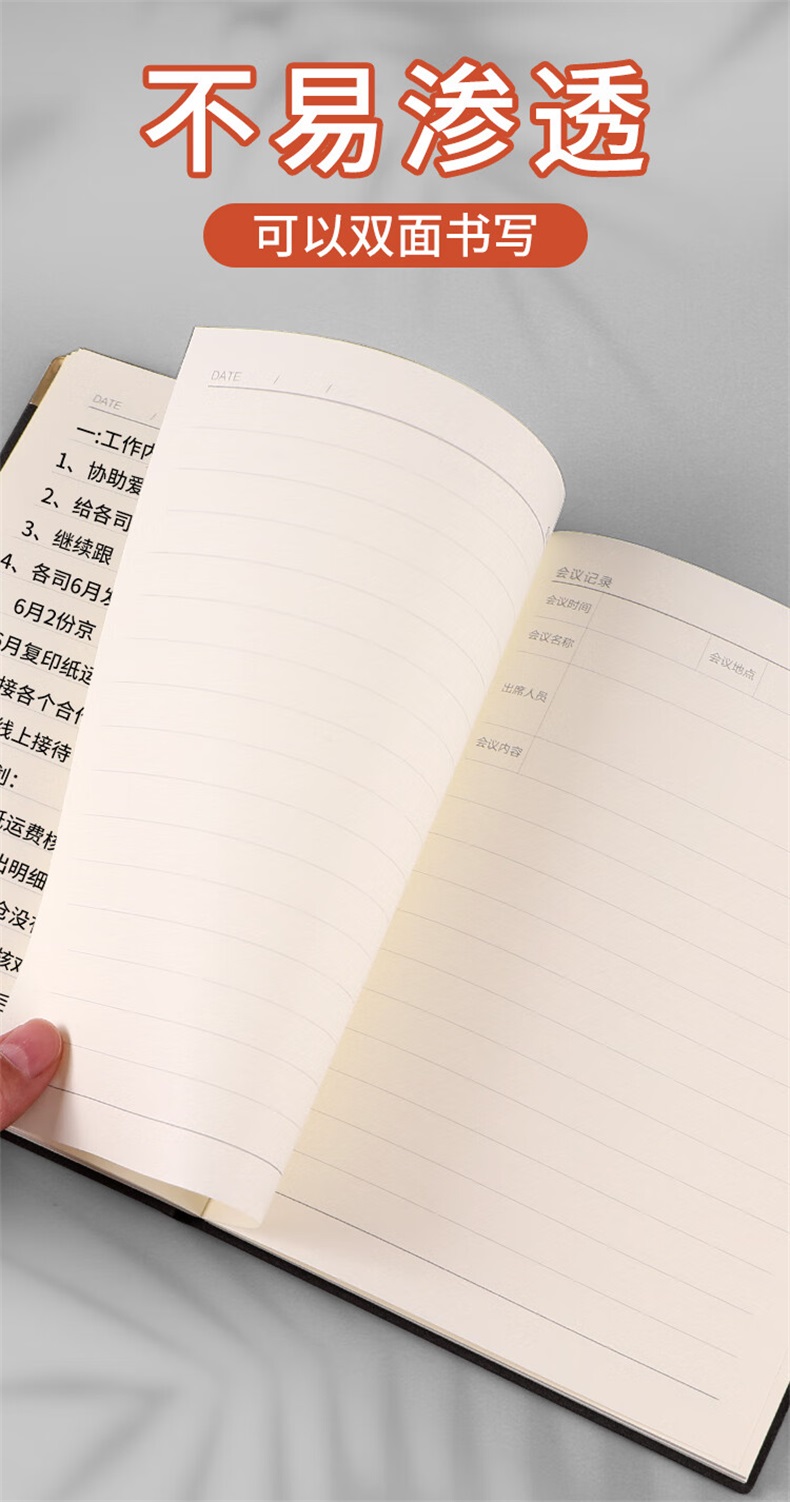 不易渗透
可以双面书写
DATE / /
DATE /
一:工作内
1、协助爱
2、给各司
3、继续跟
4、各司6月发
6月2份京
6月复印纸运
接各个合作
线上接待
划:
运费核
出明细
仓没有
核对
会议记录
会议时间
会议名称
会议地点
出席人员
会议内容